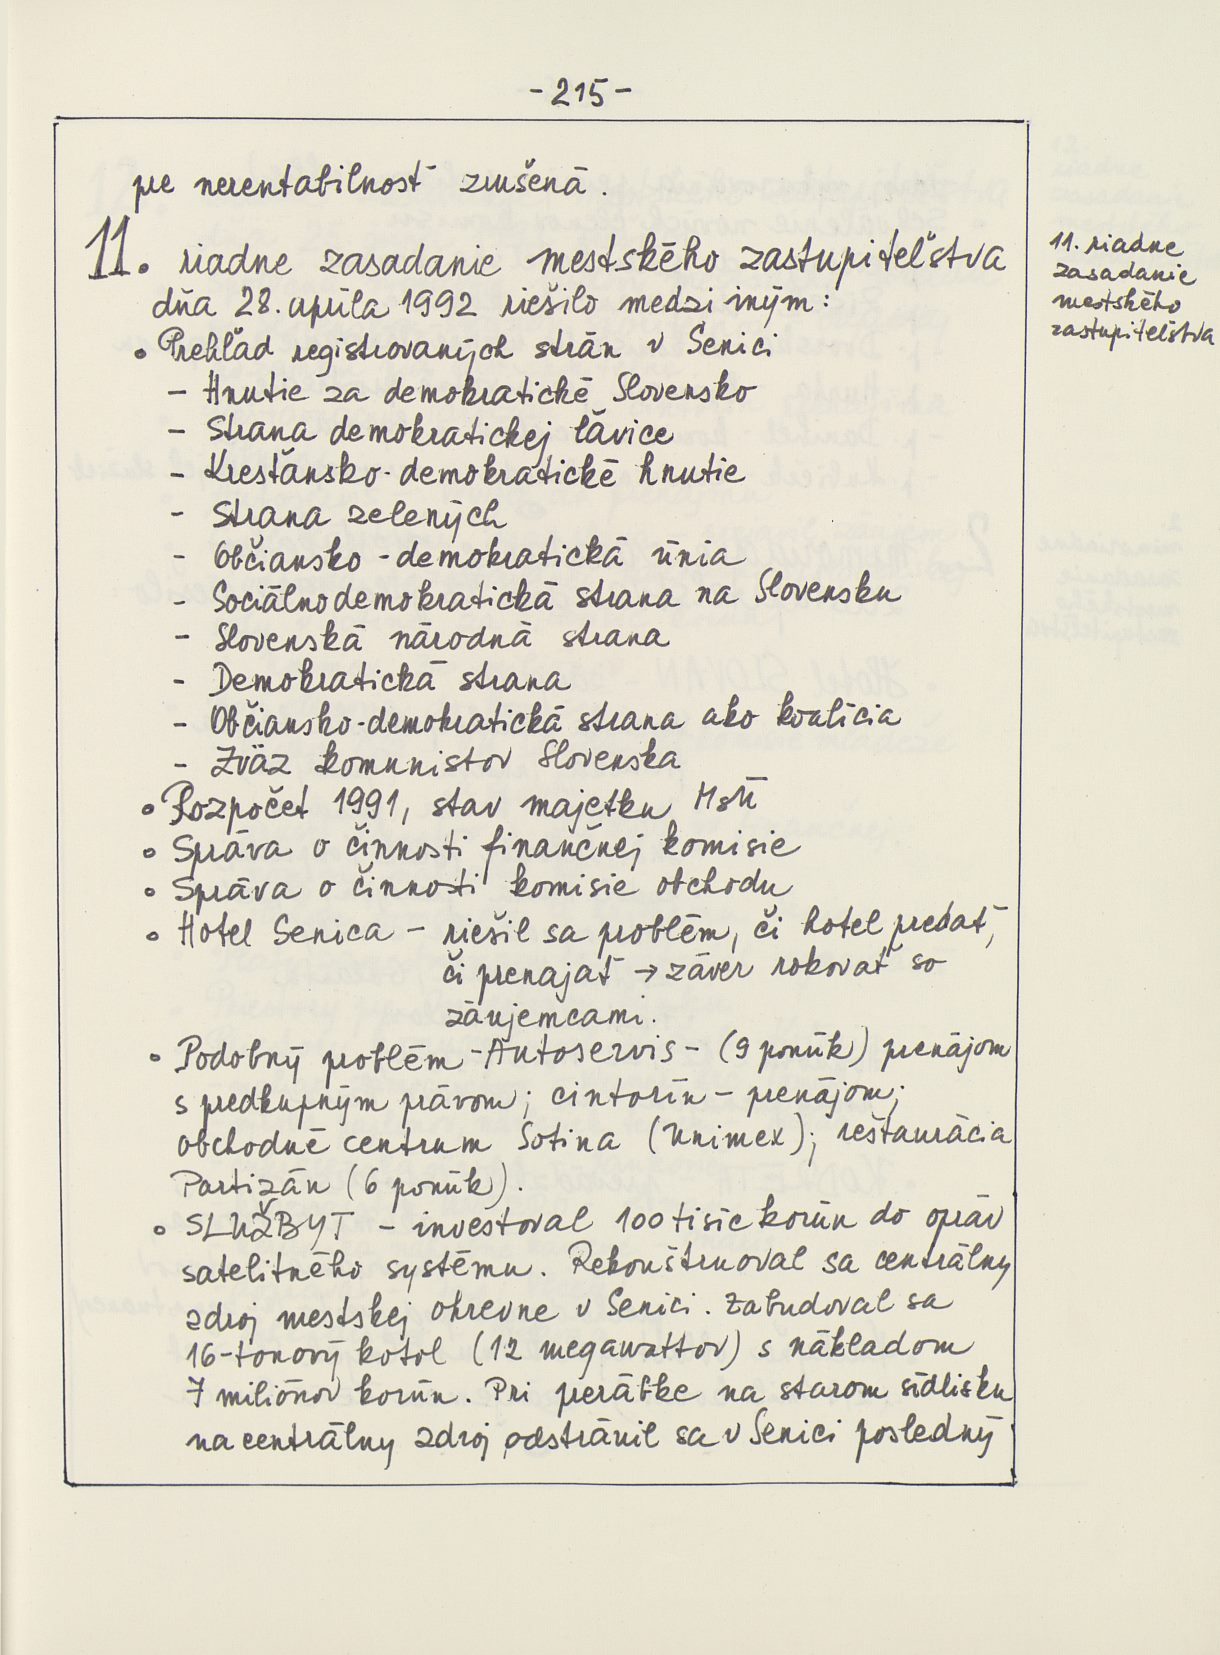 - 215 -
pre nerentabilnosť zrušená.
11. riadne zasadanie mestského zastupiteľstva
dňa 28. apríla 1992 riešilo medzi iným:
• Prehľad registrovaných strán v Senici
- Hnutie za demokratické Slovensko
- Strana demokratickej ľavice
- Kresťansko-demokratické hnutie
- Strana zelených
- Občiansko-demokratická únia
- Sociálnodemokratická strana na Slovensku
- Slovenská národná strana
- Demokratická strana
- Občiansko-demokratická strana ako koalícia
- Zväz komunistov Slovenska
• Rozpočet 1991, stav majetku MsÚ
• Správa o činnosti finančnej komisie
• Správa o činnosti komisie obchodu
• Hotel Senica - riešil sa problém, či hotel predať,
či prenajať → záver rokovať so
záujemcami.
• Podobný problém - Autoservis - (9 ponúk) prenájom
s predkupným právom; cintorín - prenájom;
obchodné centrum Sotina (Unimex); reštaurácia
Partizán (6 ponúk).
• SLUŽBYT - investoval 100 tisíc korún do opráv
satelitného systému. Rekonštruoval sa centrálny
zdroj mestskej ohrevne v Senici. Zabudoval sa
16-tonový kotol (12 megawattov) s nákladom
7 miliónov korún. Pri prerábke na starom sídlisku
na centrálny zdroj odstránil sa v Senici posledný
11. riadne
zasadanie
mestského
zastupiteľstva